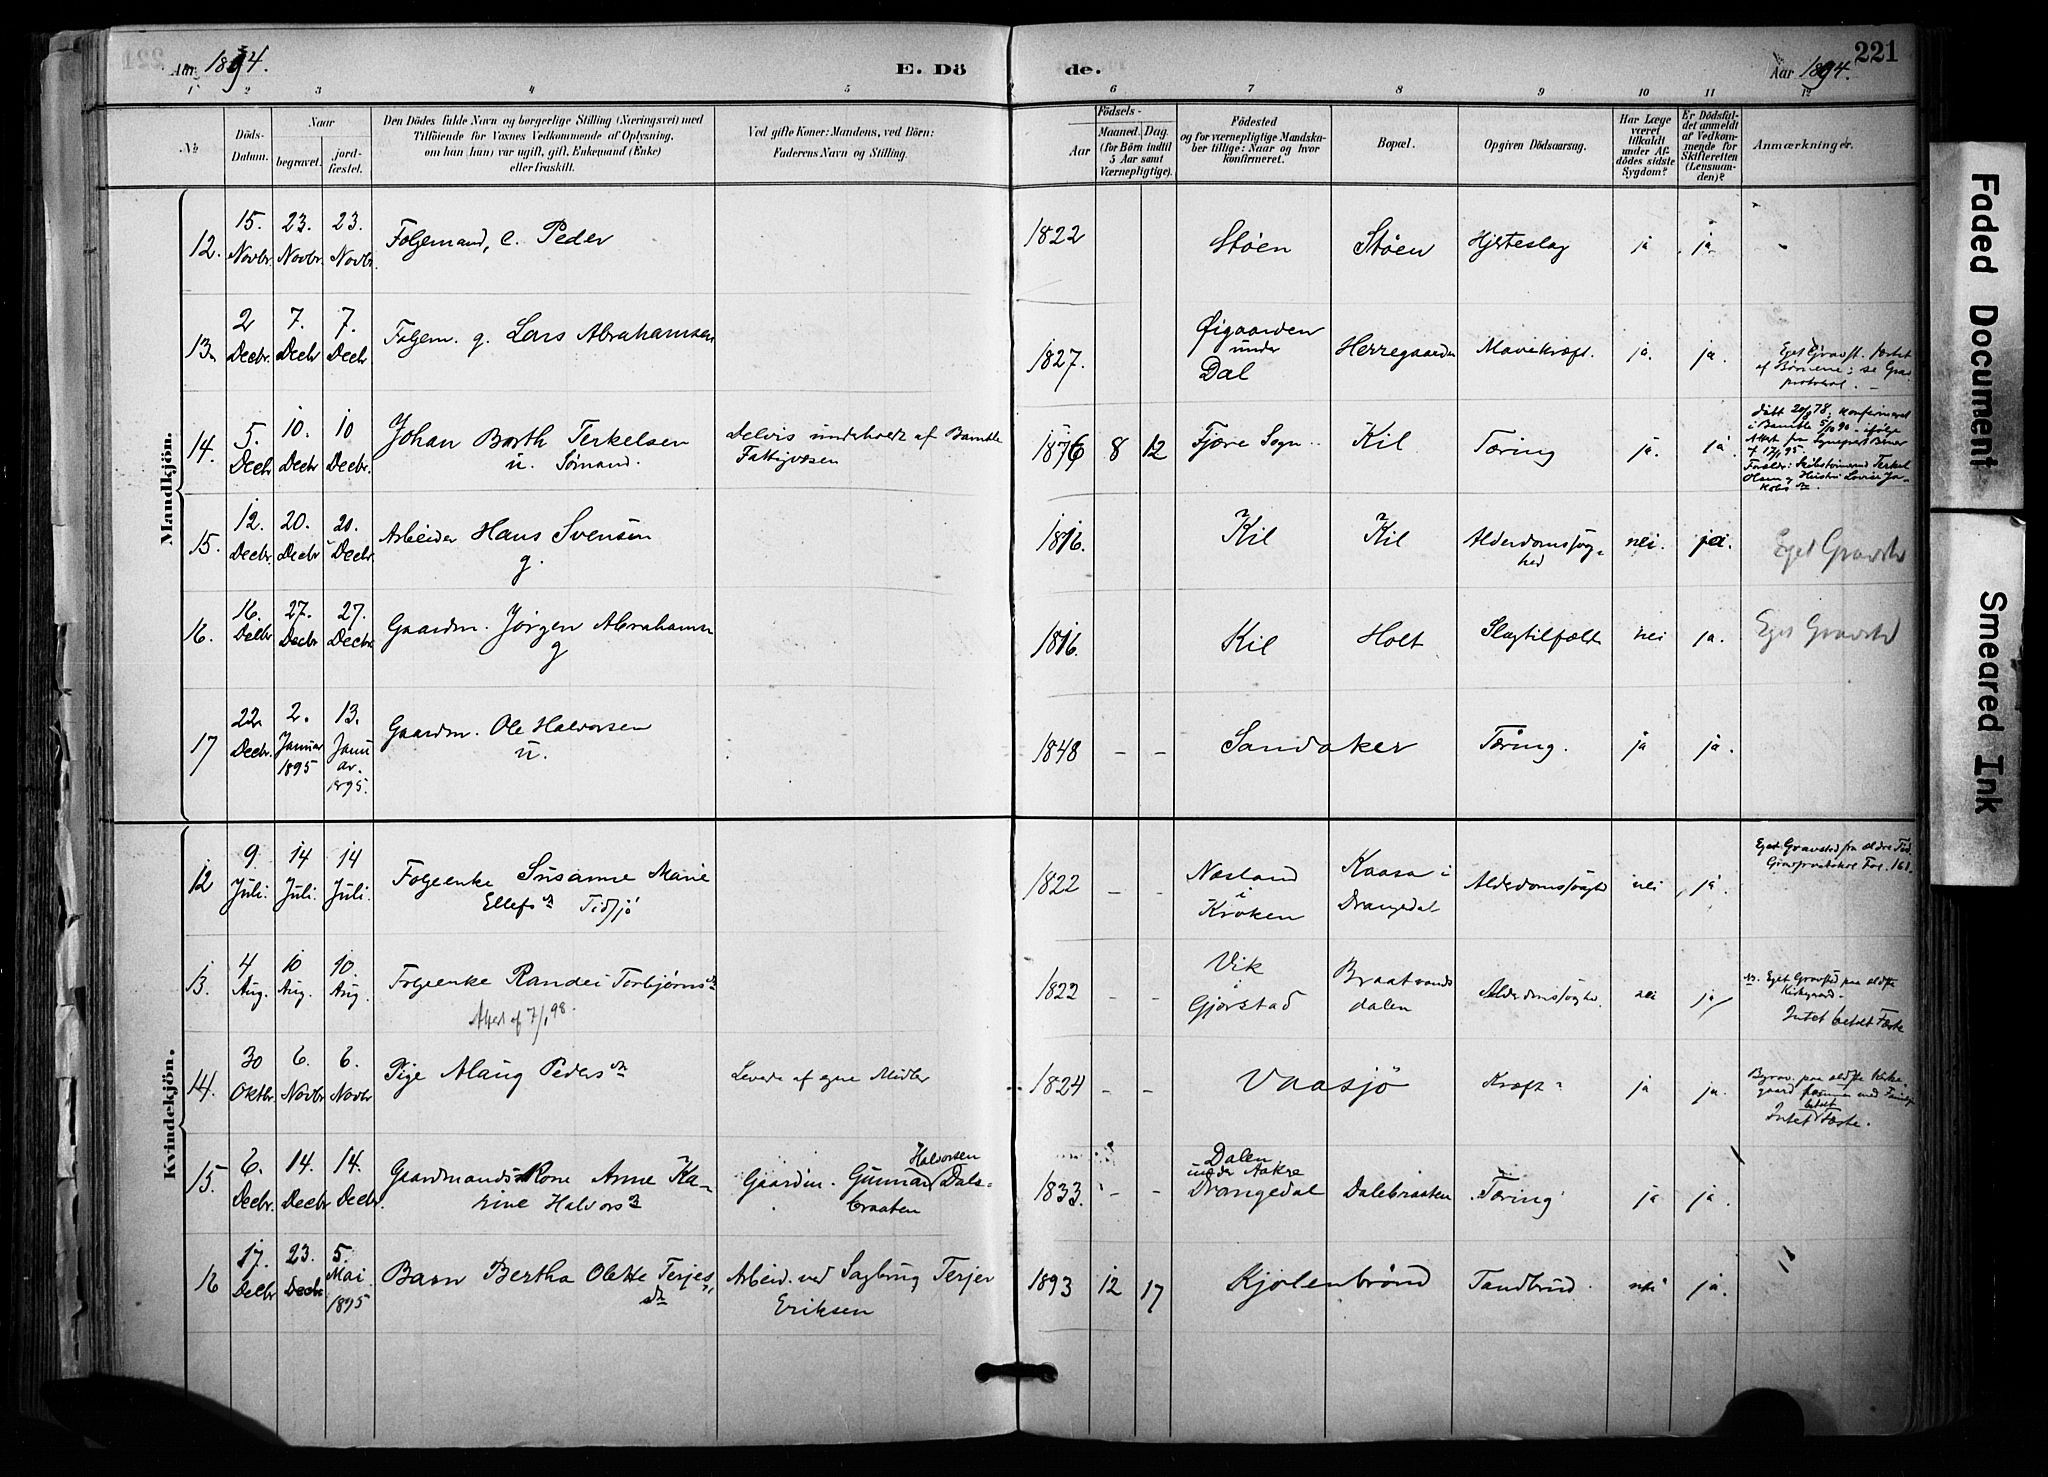 Aar 1894.
E. Döde.
Aar 1894.
221
1 2 3 4 5 6 7 8 9 10 11 12
No
Döds-Datum.
Naar
begravet.
jordfæstet.
Den Dödes fulde Navn og borgerlige Stilling (Næringsvei) med
Tilföiende for Voxnes Vedkommende af Oplysning,
om han (hun) var ugift, gift, Enkemand (Enke)
eller fraskilt.
Ved gifte Koner: Mandens, ved Börn:
Faderens Navn og Stilling.
Födsels-
Aar
Maaned. Dag.
(for Börn indtil
5 Aar samt
Værnepligtige).
Födested
og for værnepligtige Mandskaber tillige: Naar og hvor
konfirmeret.
Bopæl.
Opgiven Dödsaarsag.
Har Læge
været
tilkaldt
under Afdödes sidste
Sygdom?
Er Dödsfaldet anmeldt
af Vedkommende for
Skifteretten
(Lensmanden)?
Anmærkninger.
Mandkjön.
12. 15. Novbr. 23. Novbr. 23. Novbr. Folgemand, e. Peder 1822 Støen Støen Hjerteslag ja ja.
13. 2 Decbr. 7. Decbr 7. Decbr Folgem. g. Lars Abrahamsen 1827. Øigaarden under Dal Herregaarden Mavekræft. ja. ja. Eget Gravst. fæstet
af Børnene; se Grav
protokol.
14. 5. Decbr 10. Decbr 10 Decbr Johan Barth Terkelsen
u. Sømand.
Delvis underholdt af Bamble
Fattigvæsen
1876 8 12 Fjære Sogn Kil Tæring ja. ja. døbt 20/8 78; konfirmeret
i Bamble 5/10 90 ifølge
Attest fra Sognepræst
af 17/1 95.
Terkel
Louise
15. 12. Decbr. 20. Decbr 20. Decbr. Arbeider Hans Svensen
g.
1816. Kil Kil Alderdomssvaghed nei. ja. Eget Gravsted
16. 16. Decbr 27. Decbr 27. Decbr. Gaardm. Jørgen Abrahamsen
g
1816. Kil Holt Slagtilfælde nei ja. Eget Gravsted
17 22 Decbr. 2. Januar 1895 13. Januar. 1895. Gaardm. Ole Halvorsen
u.
1848 - - Sandaker Tæring. ja ja.
Kvindekjön.
12 9 Juli. 14 Juli. 14 Juli. Folgeenke Susanne Marie
Ellefsdr. Tidsjø
1822 - - Næsland i Kroken Kaasa i Drangedal Alderdomssvaghed nei ja. Eget Gravsted fra ældre Tid
Gravprotokol Fol. 161.
13. 4 Aug. 10 Aug. 10. Aug. Folgeenke Randei Torbjørnsdr
Attest af 7/1 98.
1822 - - Vik i Gjerstad Braatvandsdalen Alderdomssvaghed. nei ja Eget Gravsted paa ældste
Kirkegaard.
Intet betalt Fæste
14. 30 Oktbr. 6. Novbr 6. Novbr Pige Alaug Pedersdr Levede af egne Midler 1824 - - Vaasjø Kræft ja ja. Begrav. paa ældste Kirkegaard sammen med Familje
Intet betalt Fæste.
15. 6. Decbr. 14. Decbr 14. Decbr. Gaardmandskone Anne Karine Halvorsdr Gaardm. Gunnar Halvorsen Dalebraaten 1833. - - Dalen under Aakre Drangedal Dalebraaten Tæring ja ja.
16 17. Decbr 23. Decbr 5. Mai 1895 Barn Bertha Olette Terjesdr Arbeid. ved Sagbrug Terjer
Eriksen
1893 12 17 Kjølenbrønd Tandbrud. nei ja.
Faded Document
Smeared Ink